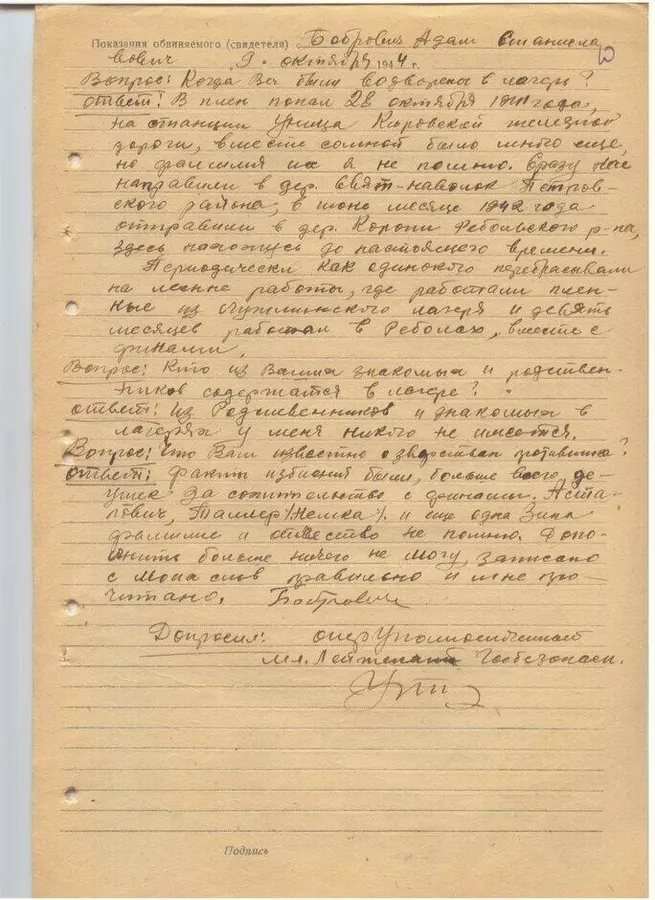 Показания обвиняемого (свидетеля) Бобрович Адам Станисла
вович 9 октября 1944 г.
Вопрос: Когда Вы были водворены в лагерь?
ответ: В плен попал 28 октября 1941 года,
на станции Уница Кировской железной
дороги, вместе сомной было много еще,
но фамилия их я не помню. Сразу нас
направили в дер. Свят-наволок Петров-
ского района, в июне месяце 1942 года
отправили в дер. Коропи Ребольского р-на,
здесь нахожусь до настоящего времени.
Периодически как одинокого перебрасывали
на лесные работы, где работали плен-
ные из лагеря и девять
месяцев работал в Реболах, вместе с
финами.
Вопрос: Кто из Ваших знакомых и родствен-
ников содержатся в лагере?
ответ: Из Родственников и знакомых в
лагерях у меня никого не имеется.
Вопрос: Что Вам известно о зверствах противника?
ответ: Факты избиения были, больше всего де-
ушек за сожительство с финами. Аста-
лович, Таллер (немка) и еще одна Зина
фамилию и отчество не помню. Допо-
лнить больше ничего не могу, записано
с моих слов правильно и мне про-
читано. Бобрович
Допросил: оперуполномоченный
мл. Лейтенант Госбезопасн.
Подпись